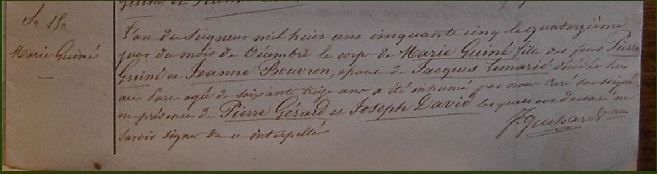 Sr 18e
Marie Guiné
L'an du Seigneur mil huit cent cinquante cinq le quatorzième
jour du mois de Décembre le corps de Marie Guiné, fille des feus Pierre
Guiné et Jeanne Bouvron, épouse de Jacques Lemarié décédée hier
au Parc agée de soixante treize ans a été inhumé par nous Curé soussigné
en présence de Pierre Gérard et Joseph David lesquels ont déclaré ne
savoir signer de ce interpellés